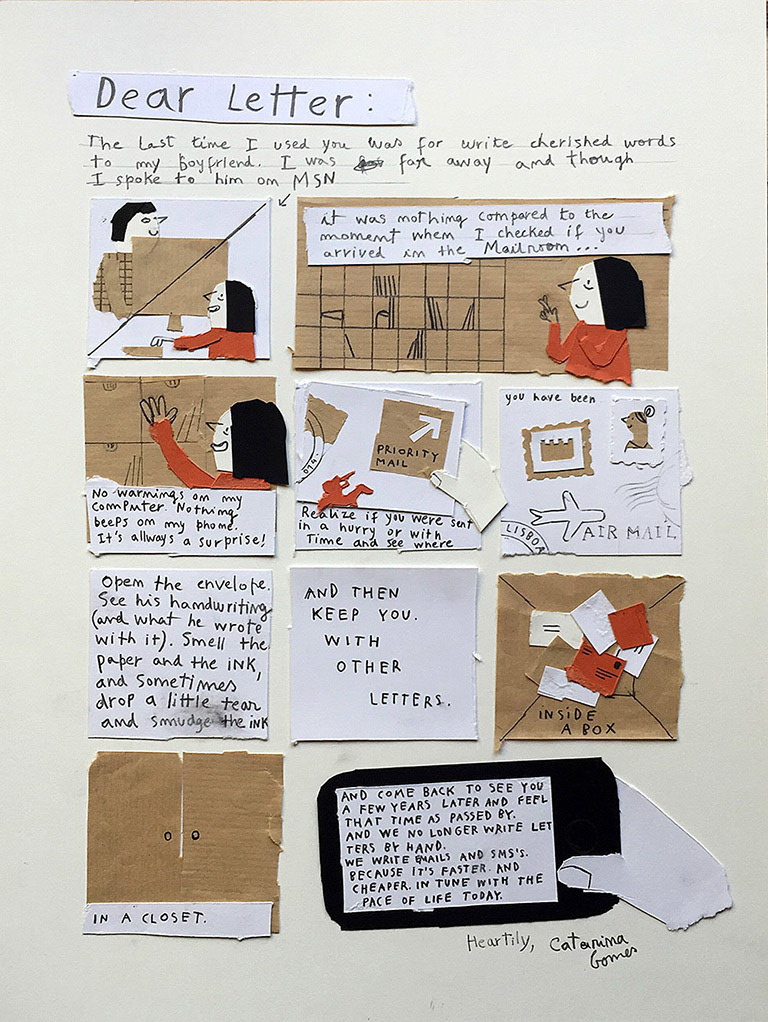 Dear Letter:
The last time I used you was for write cherished words
to my boyfriend. I was far away and though
I spoke to him on MSN
it was nothing compared to the
moment when I checked if you
arrived in the Mailroom...
No warnings on my
computer. Nothing
beeps on my phone.
It's allways a surprise!
PRIORITY
MAIL
Realize if you were sent
in a hurry or with
Time and see where
you have been
LISBOA
AIR MAIL
Open the envelope.
See his handwriting
(and what he wrote
with it). Smell the
paper and the ink,
and sometimes
drop a little tear
and smudge the ink
AND THEN
KEEP YOU.
WITH
OTHER
LETTERS.
INSIDE
A BOX
IN A CLOSET.
AND COME BACK TO SEE YOU
A FEW YEARS LATER AND FEEL
THAT TIME AS PASSED BY.
AND WE NO LONGER WRITE LET
TERS BY HAND.
WE WRITE EMAILS AND SMS'S.
BECAUSE IT'S FASTER. AND
CHEAPER. IN TUNE WITH THE
PACE OF LIFE TODAY.
Heartily, Catarina
Gomes